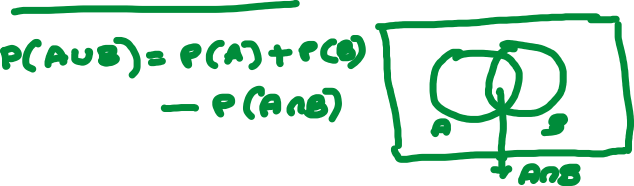 P(A∪B) = P(A) + P(B)
− P(A∩B)
A
B
A∩B